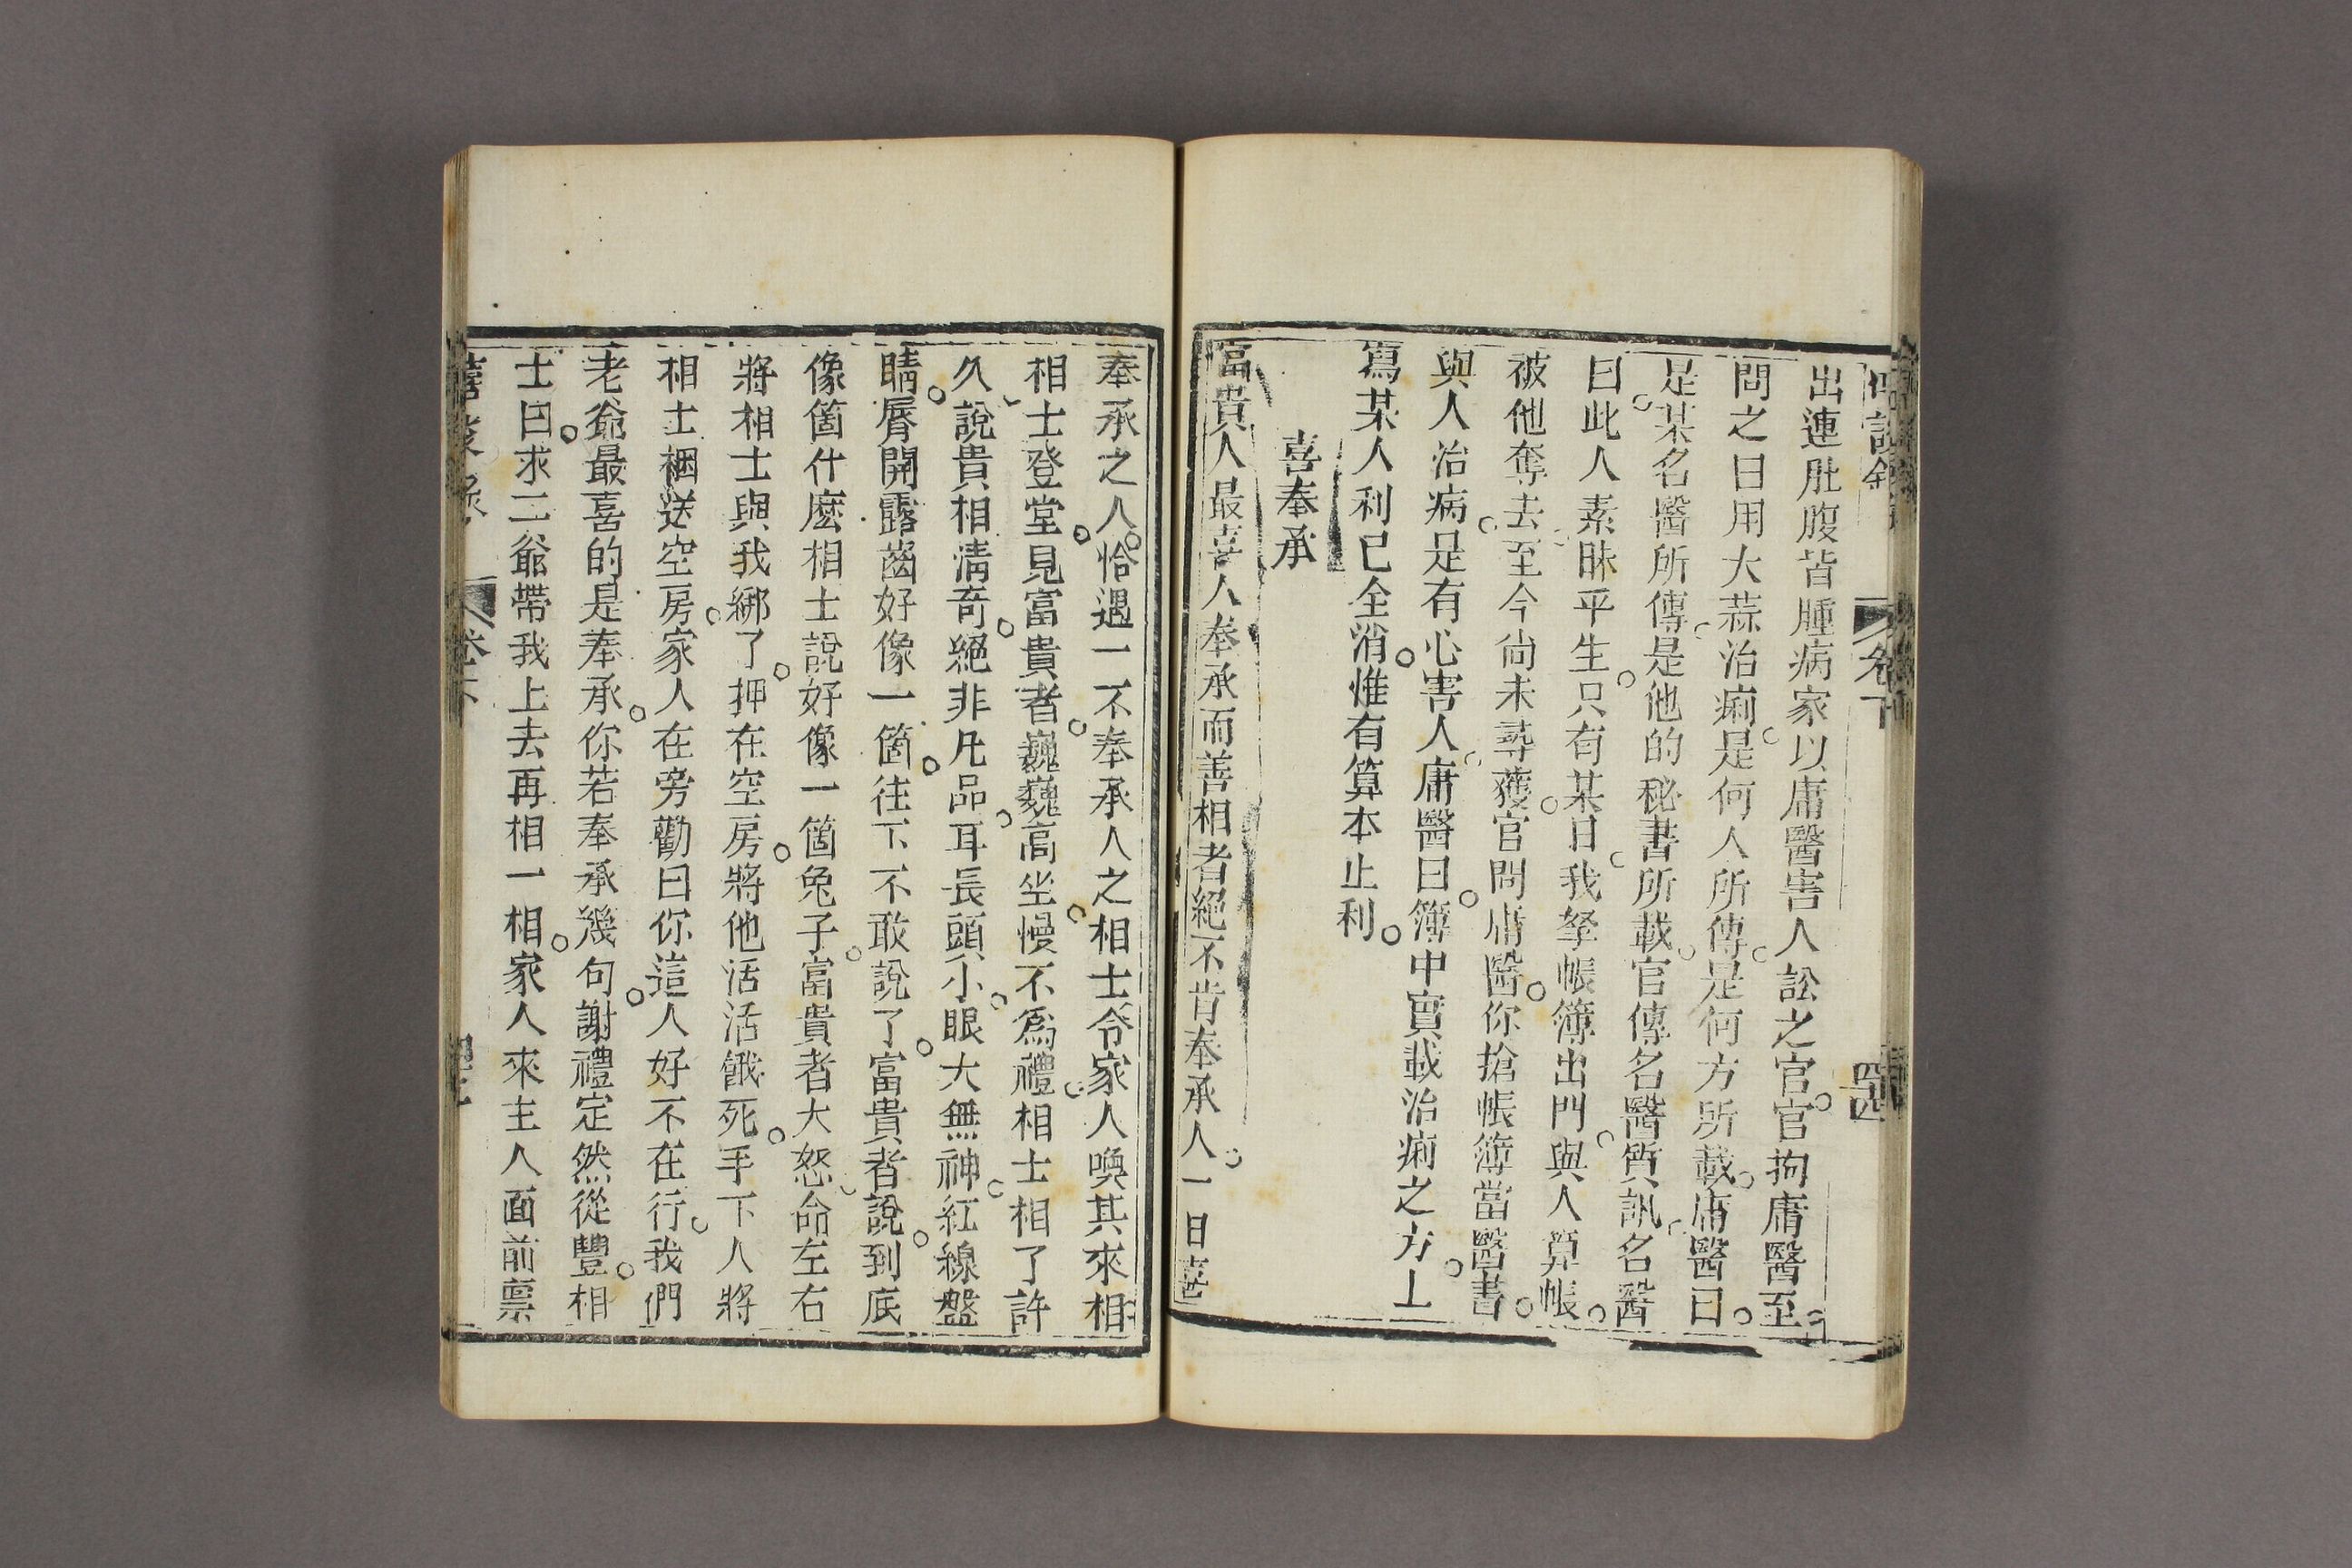 卷下
四
出連肚腹皆腫病家以庸醫害人訟之官官拘庸醫至
問之曰用大蒜治痢是何人所傳是何方所載庸醫曰
是某名醫所傳是他的秘書所載官傳名醫質訊名醫
曰此人素昧平生只有某日我拏帳簿出門與人算帳
被他奪去至今尙未尋獲官問庸醫你搶帳簿當醫書
與人治病是有心害人庸醫曰簿中實載治痢之方上
寫某人利己全消惟有算本止利
喜奉承
富貴人最喜人奉承而善相者絕不肯奉承人一日喜
奉承之人恰遇一不奉承人之相士令家人喚其來相
相士登堂見富貴者巍巍高坐慢不爲禮相士相了許
久說貴相淸奇絕非凡品耳長頭小眼大無神紅線盤
睛脣開露齒好像一箇往下不敢說了富貴者說到底
像箇什麼相士說好像一箇兔子富貴者大怒命左右
將相士與我綁了押在空房將他活活餓死手下人將
相士捆送空房家人在旁勸曰你這人好不在行我們
老爺最喜的是奉承你若奉承幾句謝禮定然從豐相
士曰求二爺帶我上去再相一相家人來主人面前禀
卷下